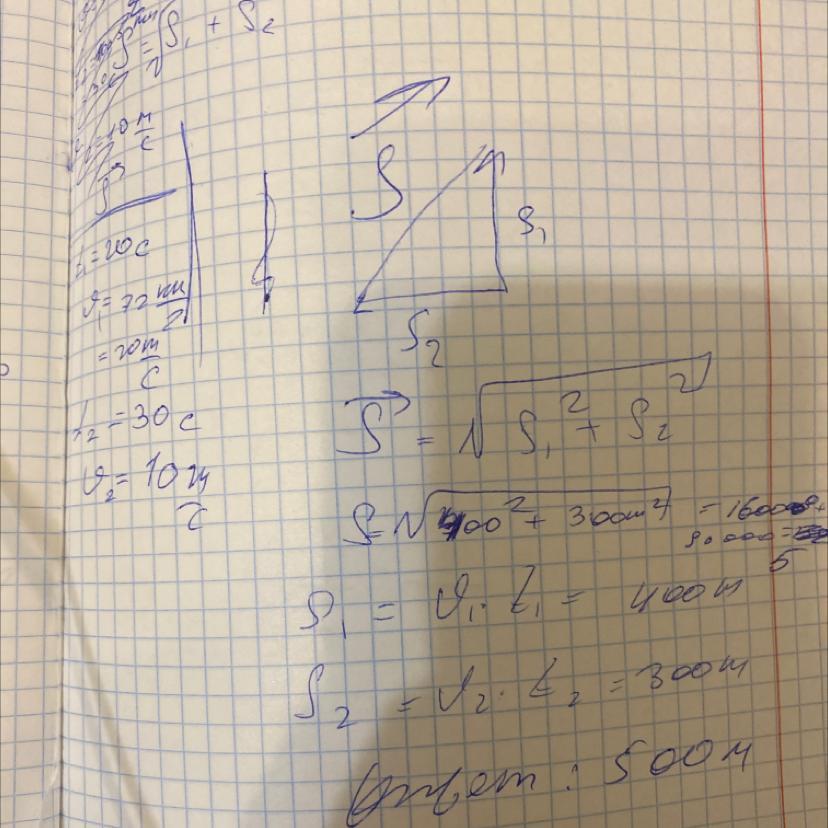 S = √S₁ + S₂
= 10 м/с
S⃗
t₁ = 20 с
υ₁ = 72 км/г
= 20 m/с
t₂ = 30 с
υ₂ = 10 m/с
S
S₁
S₂
S⃗ = √S₁² + S₂²
S = √400² + 300m² = 160000 +
90000 =
5
S₁ = υ₁ · t₁ = 400m
S₂ = υ₂ · t₂ = 300m
Ответ : 500 м